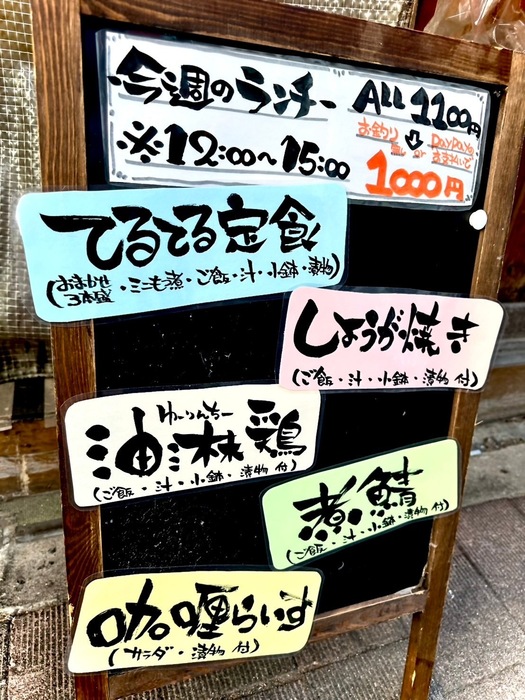 今週のランチ ALL 1100円
お釣り無し or PayPayお支払いで
※12:00〜15:00 1000円
てるてる定食
(おまかせ3本盛・ミニもつ煮・ご飯・汁・小鉢・漬物)
しょうが焼き
(ご飯・汁・小鉢・漬物 付)
ゆーりんちー
油淋鶏
(ご飯・汁・小鉢・漬物 付)
煮鯖
(ご飯・汁・小鉢・漬物 付)
咖喱らいす
(サラダ・漬物 付)